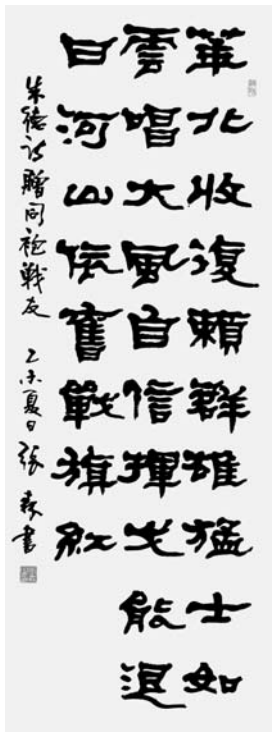 華北收復賴群雄猛士如
雲唱大風自信揮戈能退
日河山依舊戰旗紅
朱德詩贈同袍戰友 乙未夏日張森書